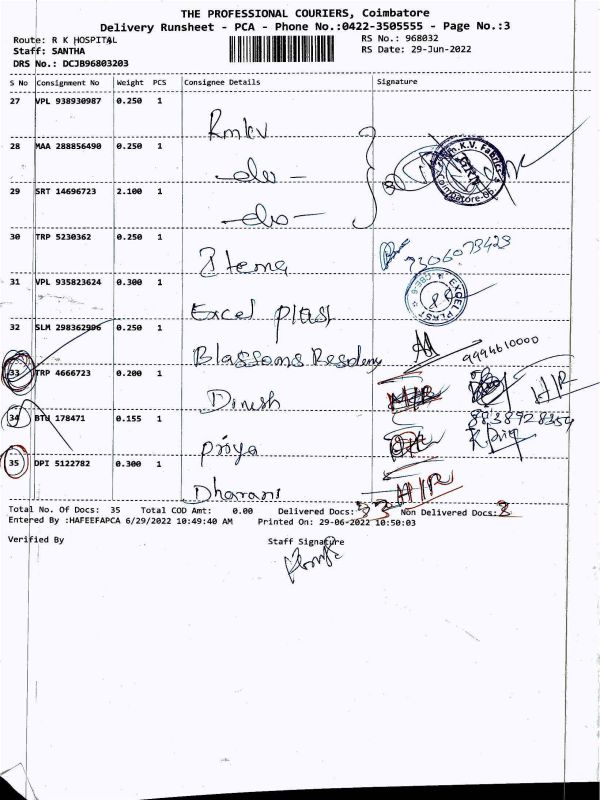 THE PROFESSIONAL COURIERS, Coimbatore
Delivery Runsheet - PCA - Phone No.:0422-3505555 - Page No.:3
Route: R K HOSPITAL
RS No.: 968032
Staff: SANTHA
RS Date: 29-Jun-2022
DRS No.: DCJB96803203
S No Consignment No Weight PCS Consignee Details Signature
27 VPL 938930987 0.250 1
Rmkv
28 MAA 288856490 0.250 1
-do-
29 SRT 14696723 2.100 1
-do-
30 TRP 5230362 0.250 1
7306073423
31 VPL 935823624 0.300 1
Excel plast
EXCEL PLAST
32 SLM 298362996 0.250 1
Blassoms Residency
9994610000
33 TRP 4666723 0.200 1
Dinesh
H/R
34 BTU 178471 0.155 1
8838928354
Priya
35 DPI 5122782 0.300 1
Dharani
H/R
Total No. Of Docs: 35 Total COD Amt: 0.00 Delivered Docs: Non Delivered Docs:
Entered By :HAFEEFAPCA 6/29/2022 10:49:40 AM Printed On: 29-06-2022 10:50:03
Verified By Staff Signature